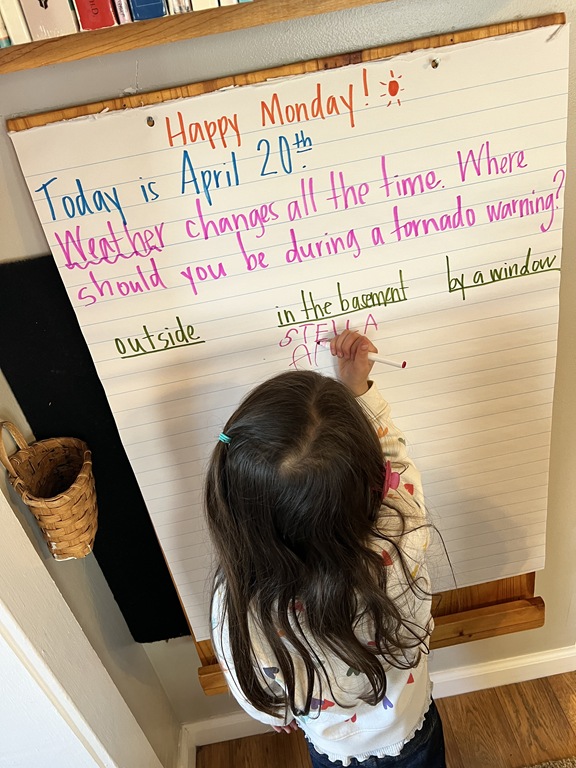 Happy Monday!
Today is April 20th
Weather changes all the time. Where
should you be during a tornado warning?
outside in the basement by a window
STELLA